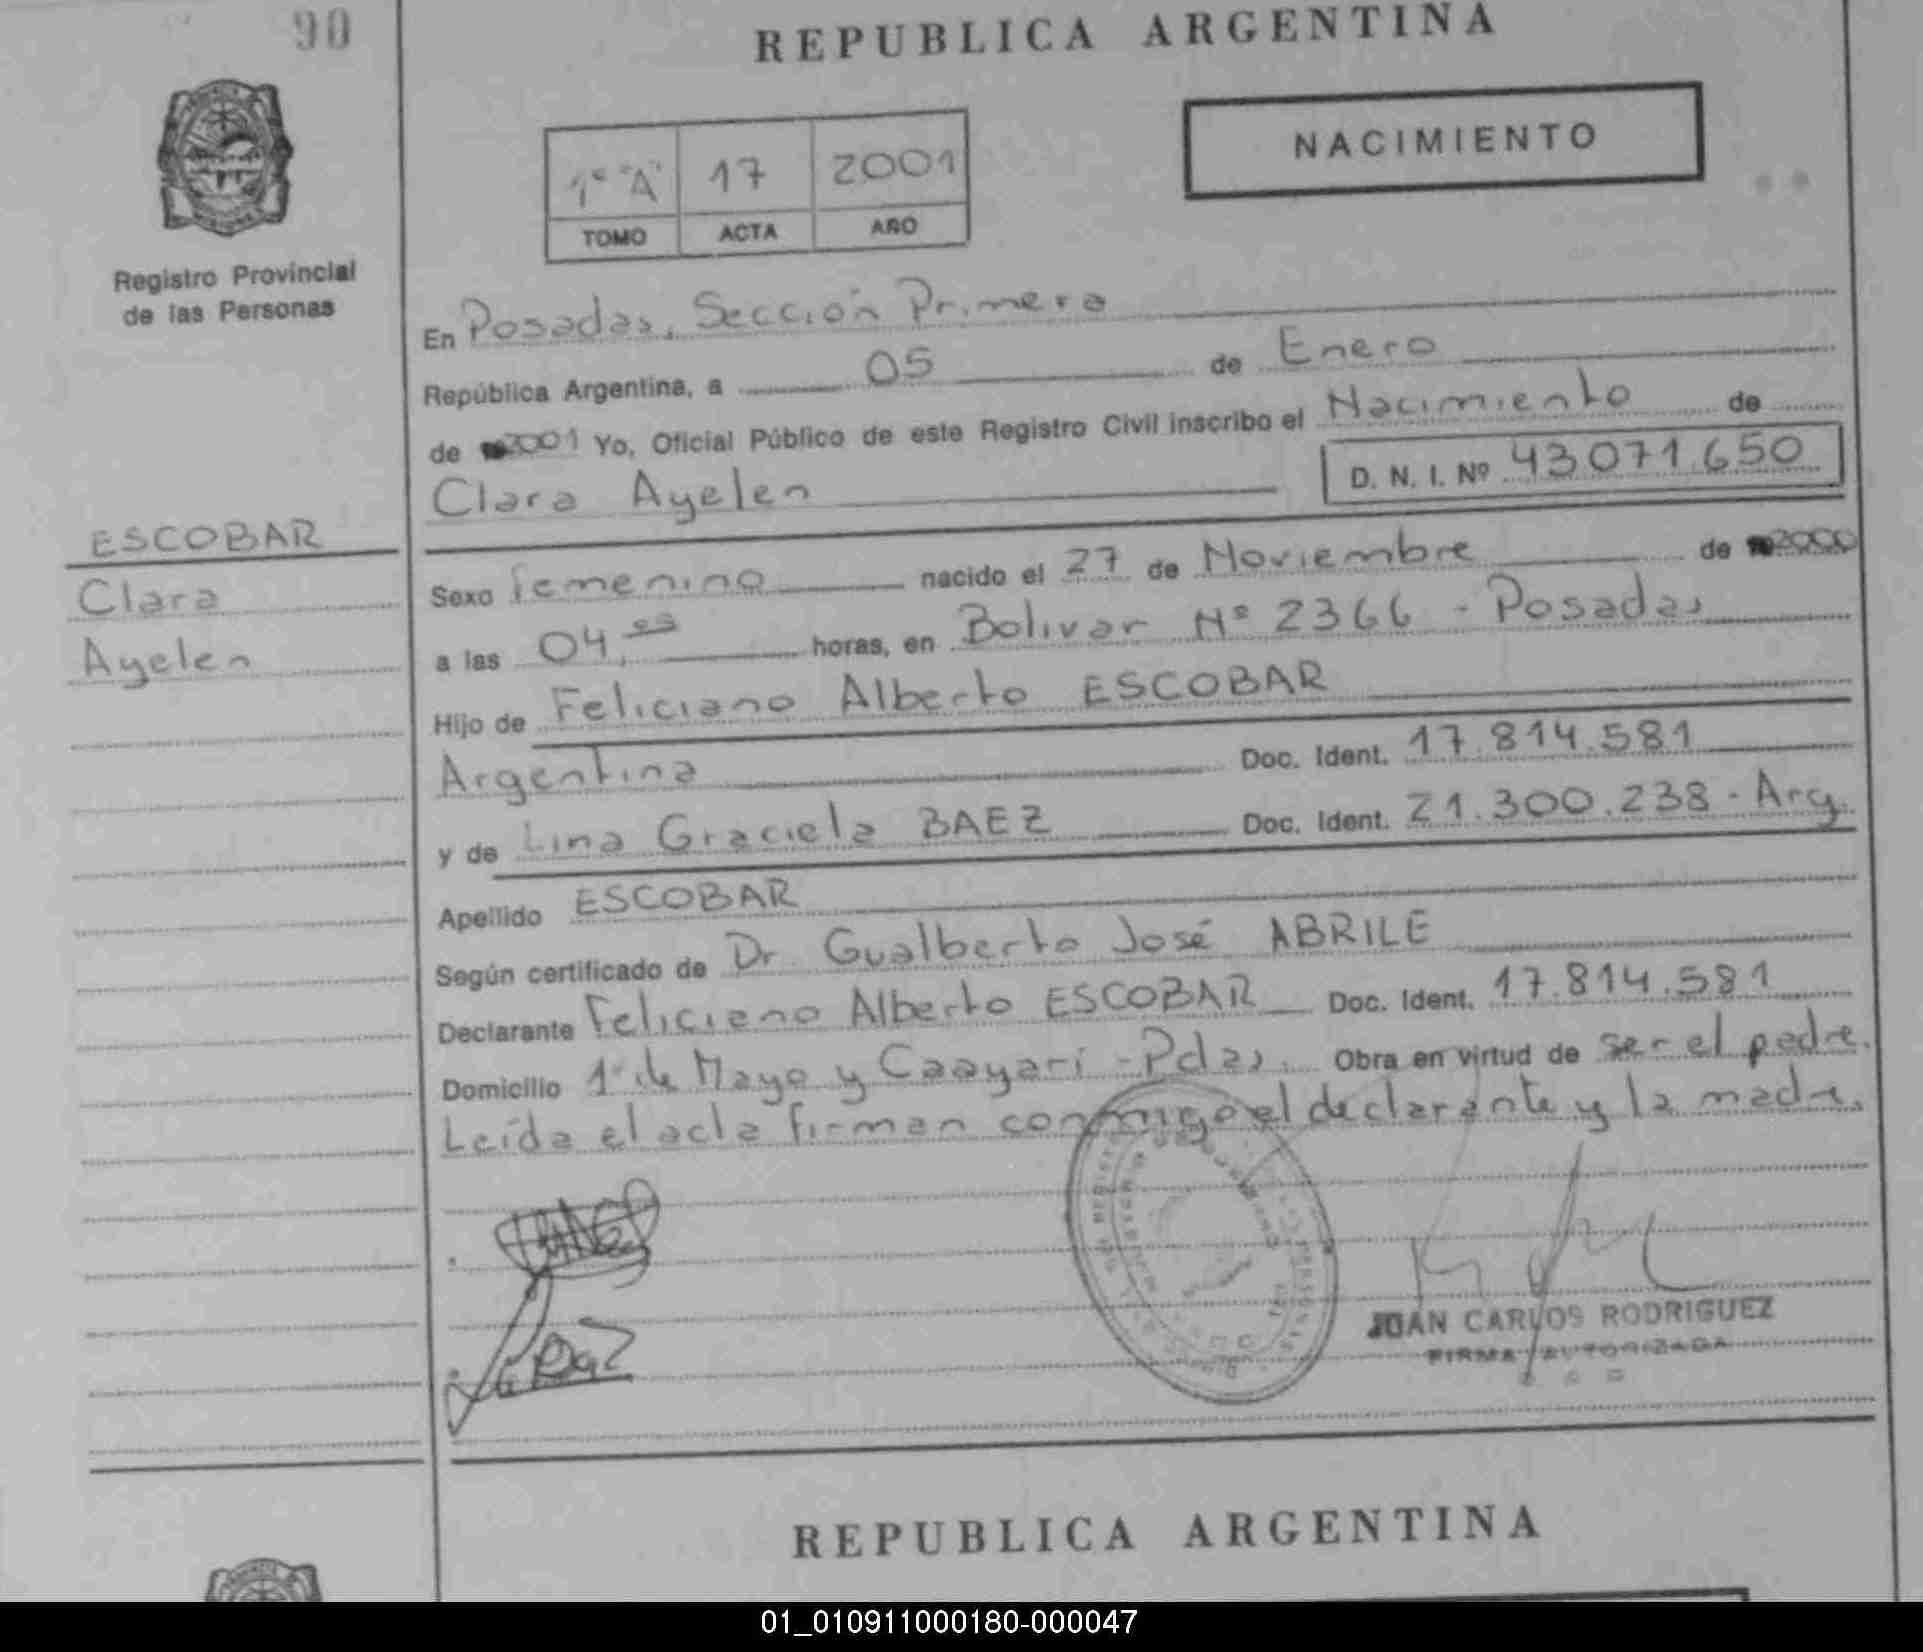 90
REPUBLICA ARGENTINA
NACIMIENTO
1º "A" 17 2001
TOMO ACTA AÑO
Registro Provincial
de las Personas
En Posadas, Sección Primera
República Argentina, a 05 de Enero
de 2001 Yo, Oficial Público de este Registro Civil inscribo el Nacimiento de
Clara Ayelen D. N. I. Nº 43071.650
ESCOBAR
Clara
Ayelen
Sexo femenino nacido el 27 de Noviembre de 2000
a las 04, horas, en Bolivar Nº 2366 - Posadas
Hijo de Feliciano Alberto ESCOBAR
Argentina Doc. Ident. 17.814.581
y de Lina Graciela BAEZ Doc. Ident. 21.300.238 - Arg.
Apellido ESCOBAR
Según certificado de Dr. Gualberto José ABRILE
Declarante Feliciano Alberto ESCOBAR Doc. Ident. 17.814.581
Domicilio 1º de Mayo y Caayarí - Pdas. Obra en virtud de ser el padre.
Leída el acta firman conmigo el declarante y la madre.
JUAN CARLOS RODRIGUEZ
FIRMA AUTORIZADA
REPUBLICA ARGENTINA
01_010911000180-000047